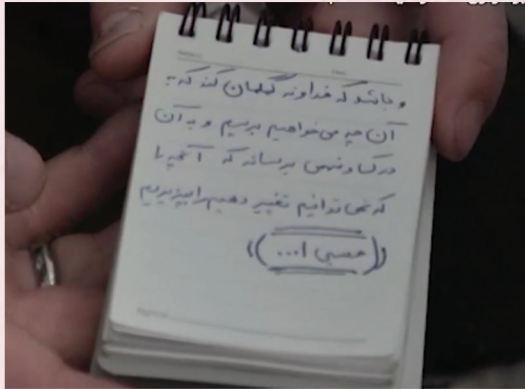 و باشد که خداوند کمکمان کند که به
آن چه می‌خواهیم برسیم و به آن
درک و فهمی برساند که آنچه را
که نمی‌توانیم تغییر دهیم را بپذیریم
((حسبی ا...))